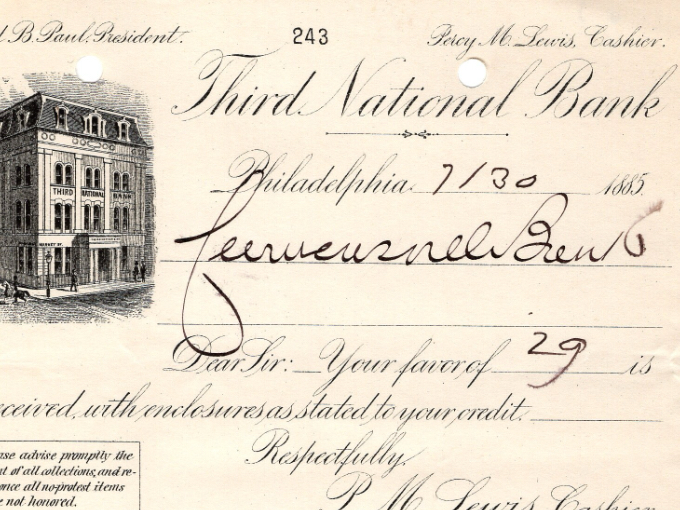 l B. Paul, President. 243 Percy M. Lewis, Cashier.
Third National Bank
THIRD NATIONAL BANK
MARKET ST.
Philadelphia 7/30 1885.
Curwensville Bank
Dear Sir: Your favor of 29 is
eceived, with enclosures as stated to your credit.
Respectfully,
P. M. Lewis, Cashier
ase advise promptly the
nt of all collections, and re-
once all no-protest items
e not honored.